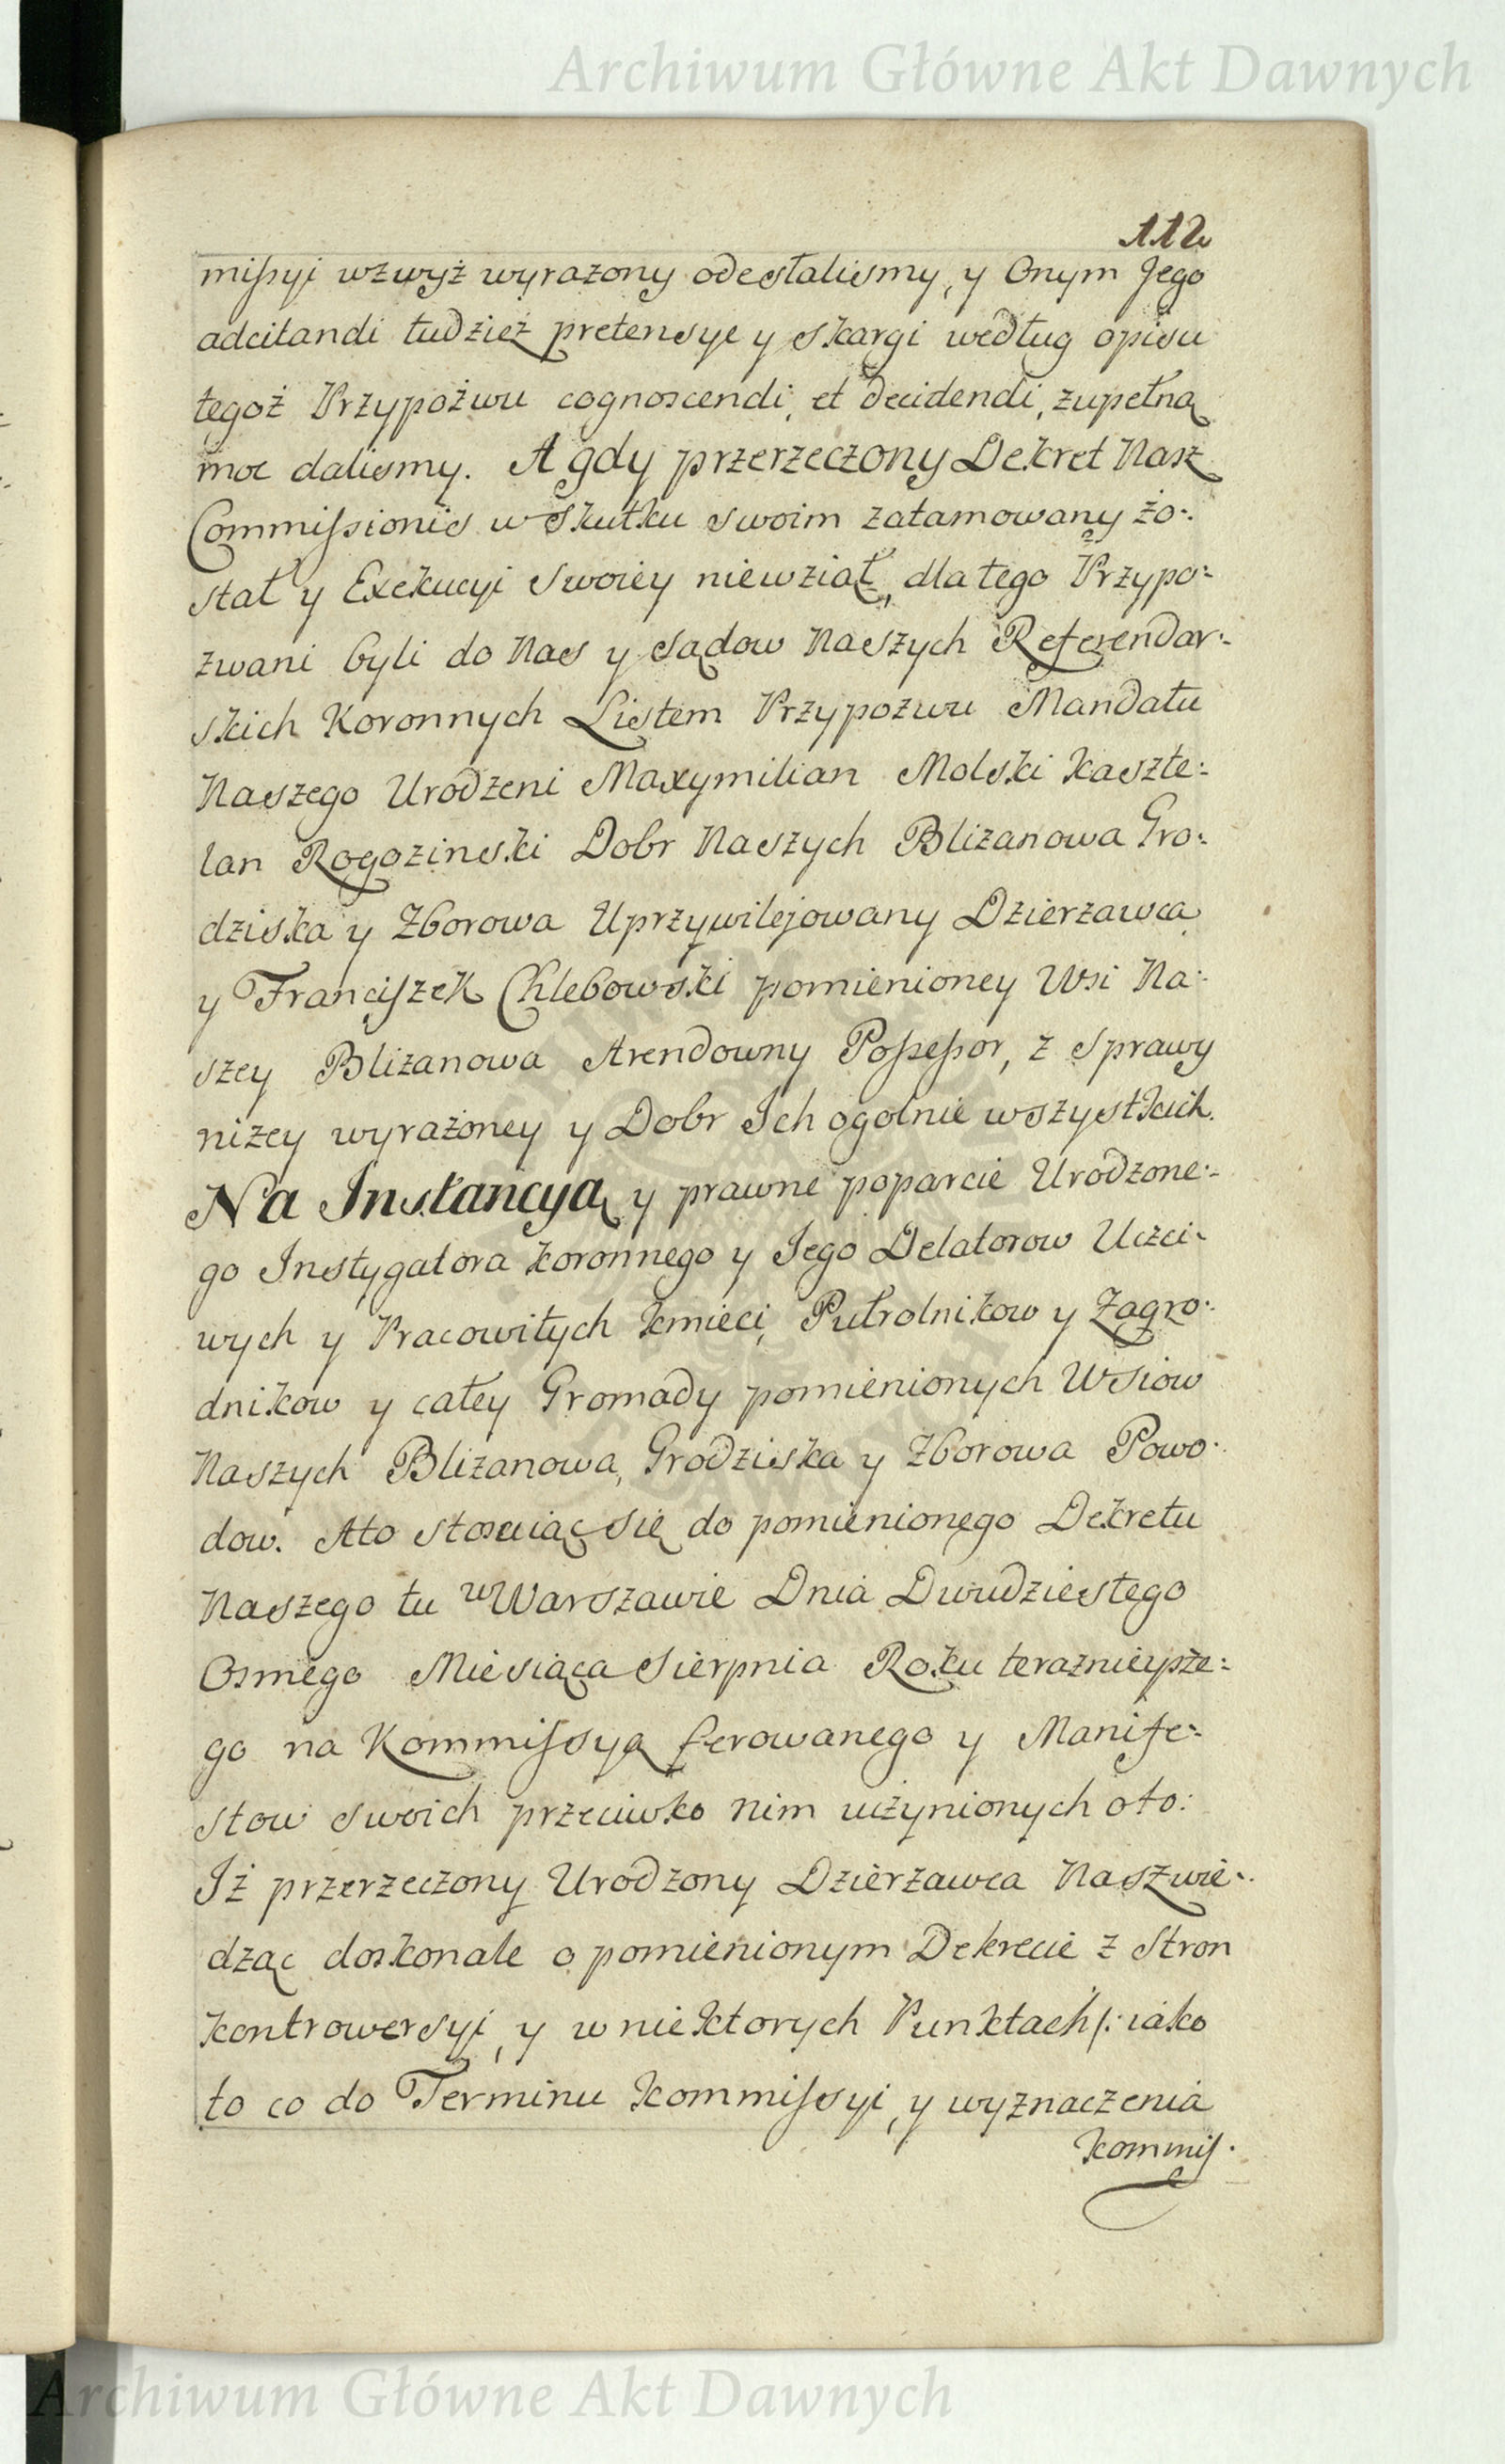 Archiwum Główne Akt Dawnych
112
missyi wzwyż wyrażony odesłalismy, y Onym Jego
adcitandi tudzież pretensye y skargi według opisu
tegoż Przypożwu cognoscendi, et decidendi, zupełną
moc dalismy. A gdy przerzeczony Dekret Nasz
Commissionis w Skutku swoim zatamowany zo:
stał y Exekucyi Swoiey niewziął, dla tego Przypo:
zwani byli do Nas y Sądow Naszych Referendar:
skich Koronnych Listem Przypozwu Mandatu
Naszego Urodzeni Maxymilian Molski Kaszte:
lan Rogozinski Dobr Naszych Blizanowa Gro:
dziska y Zborowa Uprzywilejowany Dzierzawca
y Franciszek Chlebowski pomienioney Wsi Na:
szey Blizanowa Arendowny Possessor, z sprawy
niżey wyrażoney y Dobr Ich ogolnie wszystkich.
Na Instancyą y prawne poparcie Urodzone:
go Instygatora Koronnego y Jego Delatorow Uczci:
wych y Pracowitych Kmieci, Pułrolnikow y Zagro:
dnikow y całey Gromady pomienionych Wsiow
Naszych Blizanowa, Grodziska y Zborowa Powo:
dow. Ato stosuiąc się do pomienionego Dekretu
Naszego tu w Warszawie Dnia Dwudziestego
Osmego Miesiąca Sierpnia Roku teraznieysze:
go na Kommissyą ferowanego y Manife:
stow swoich przeciwko nim uczynionych oto:
Iż przerzeczony Urodzony Dzierzawca Nasz wie:
dząc doskonale o pomienionym Dekrecie z Stron
kontrowersyi, y w niektorych Punktach /: iako
to co do Terminu Kommissyi, y wyznaczenia
Kommis.
Archiwum Główne Akt Dawnych